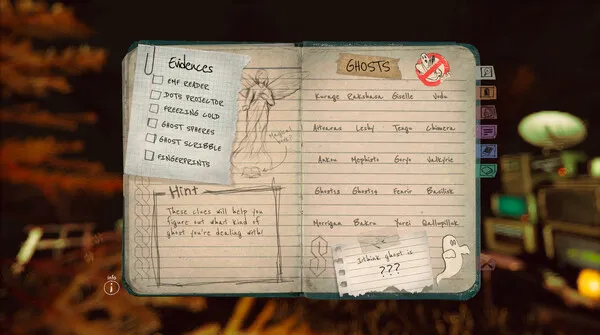 Evidences
EMF READER
DOTS PROJECTOR
FREEZING COLD
GHOST SPHERES
GHOST SCRIBBLE
FINGERPRINTS
Hint
These clues will help you
figure out what kind of
ghost you're dealing with!
GHOSTS
Kurage Rakshasa Giselle Vodu
Leshy Tengu Chimera
Ankou Mephisto Goryo Valkyrie
Ghost13 Ghost14 Fenrir Basilisk
Morrigan Bakru Yurei Qallupilluk
I think ghost is
???
info